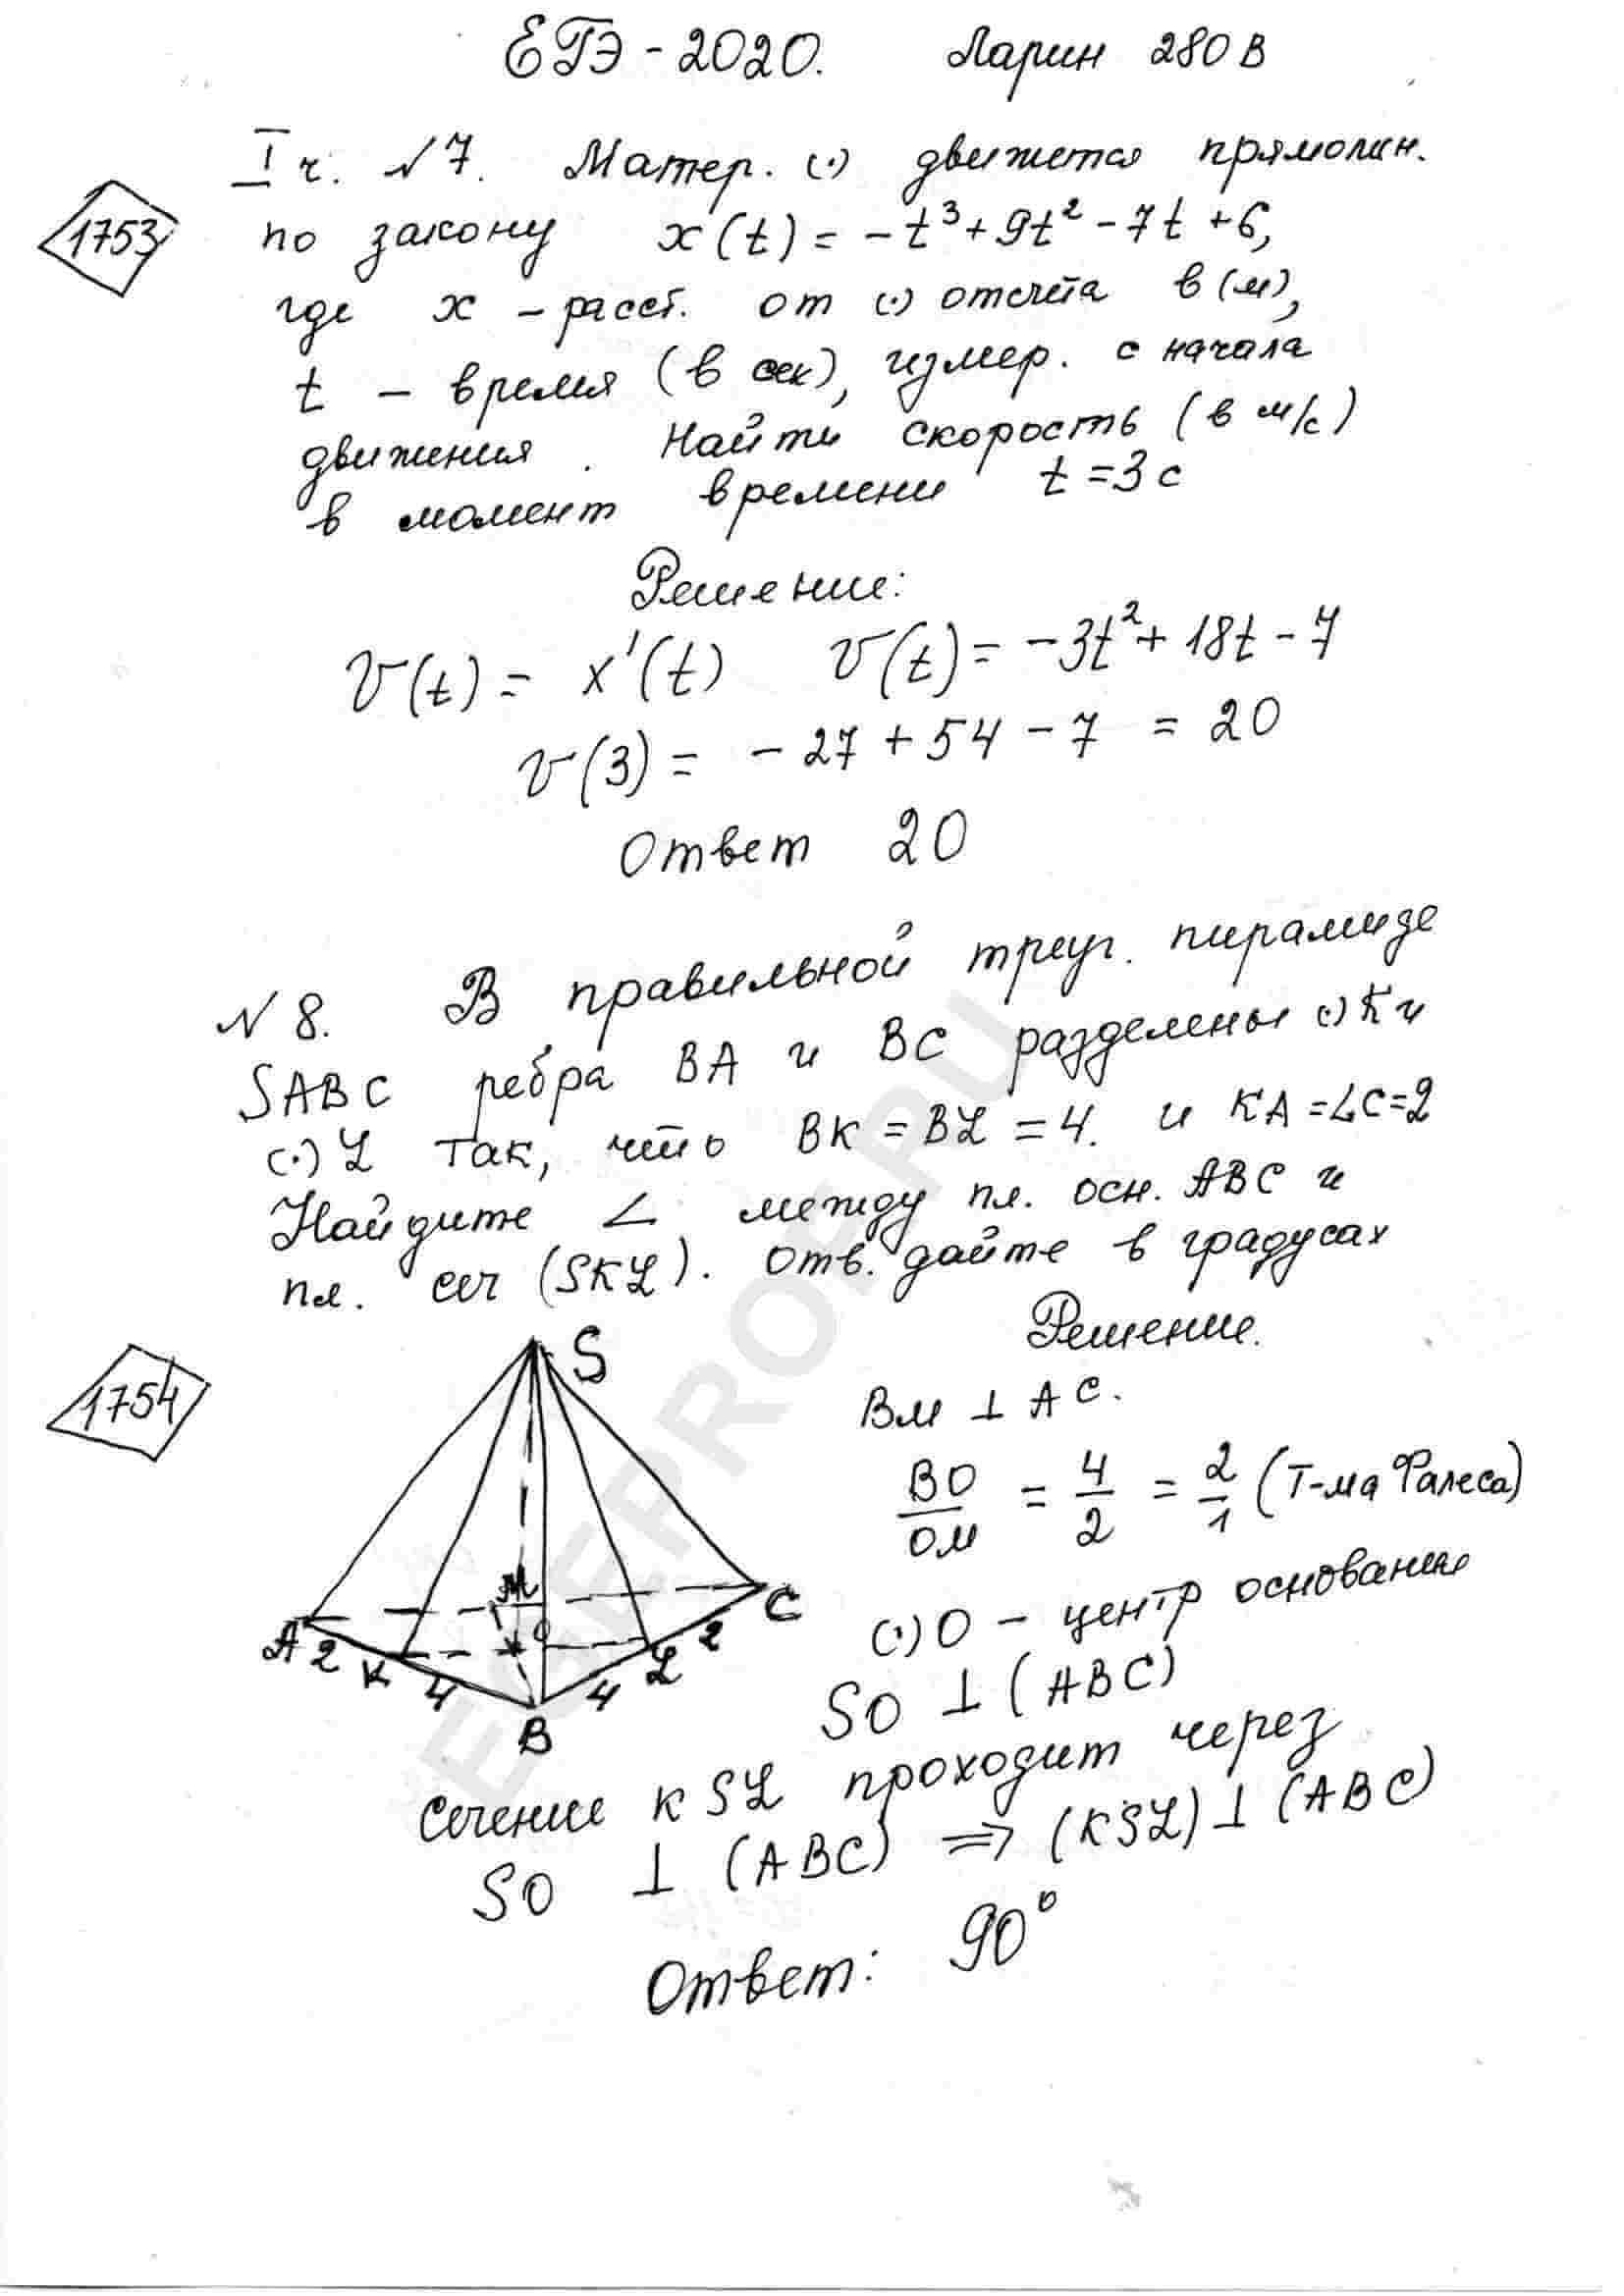 ЕГЭ - 2020. Ларин 280 В
I ч. №7. Матер. (·) движется прямолин.
1753
по закону x(t) = -t³ + 9t² - 7t + 6,
где x - расст. от (·) отсчёта в (м),
t - время (в сек), измер. с начала
движения. Найти скорость (в м/с)
в момент времени t = 3 с
Решение:
V(t) = x'(t) V(t) = -3t² + 18t - 7
V(3) = - 27 + 54 - 7 = 20
Ответ 20
№ 8. В правильной треуг. пирамиде
SABC ребра BA и BC разделены (·) K и
(·) L так, что BK = BL = 4. и KA = LC = 2
Найдите ∠ между пл. осн. ABC и
пл. сеч (SKL). Отв. дайте в градусах
Решение.
1754
S
A
2
K
4
B
4
L
2
C
M
O
BM ⊥ AC.
BO/OM = 4/2 = 2/1 (Т-ма Фалеса)
(·) O - центр основания
SO ⊥ (ABC)
Сечение KSL проходит через
SO ⊥ (ABC) ⇒ (KSL) ⊥ (ABC)
Ответ: 90°
EGEPROF.RU